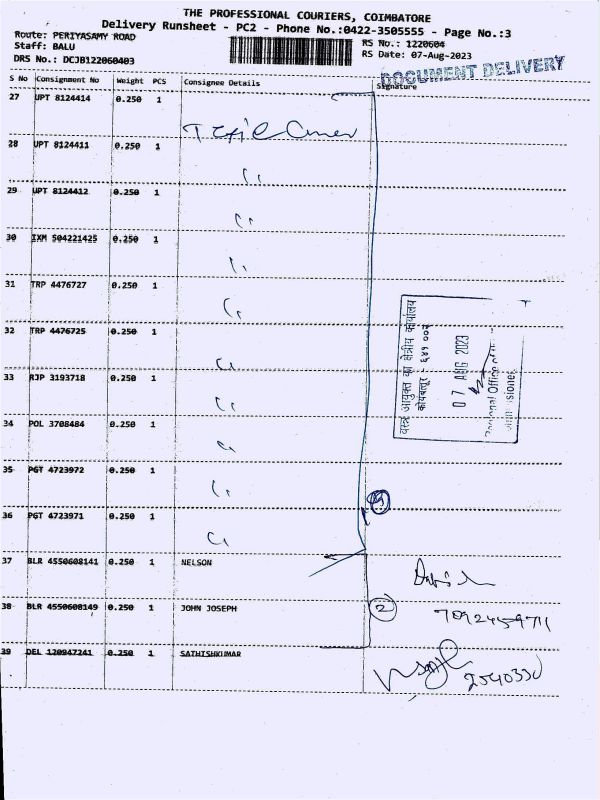 THE PROFESSIONAL COURIERS, COIMBATORE
Delivery Runsheet - PC2 - Phone No.:0422-3505555 - Page No.:3
Route: PERIYASAMY ROAD
RS No.: 1220604
Staff: BALU
RS Date: 07-Aug-2023
DRS No.: DCJB122060403
DOCUMENT DELIVERY
S No Consignment No Weight PCS Consignee Details Signature
27 UPT 8124414 0.250 1
28 UPT 8124411 0.250 1
29 UPT 8124412 0.250 1
30 IXM 504221425 0.250 1
31 TRP 4476727 0.250 1
32 TRP 4476725 0.250 1
33 RJP 3193718 0.250 1
34 POL 3708484 0.250 1
35 PGT 4723972 0.250 1
36 PGT 4723971 0.250 1
वस्त्र आयुक्त का क्षेत्रीय कार्यालय
कोयंबत्तूर - ६४१ ००२
07 AUG 2023
37 BLR 4550608141 0.250 1 NELSON
38 BLR 4550608149 0.250 1 JOHN JOSEPH 2 7092459711
39 DEL 120947241 0.250 1 SATHISHKUMAR